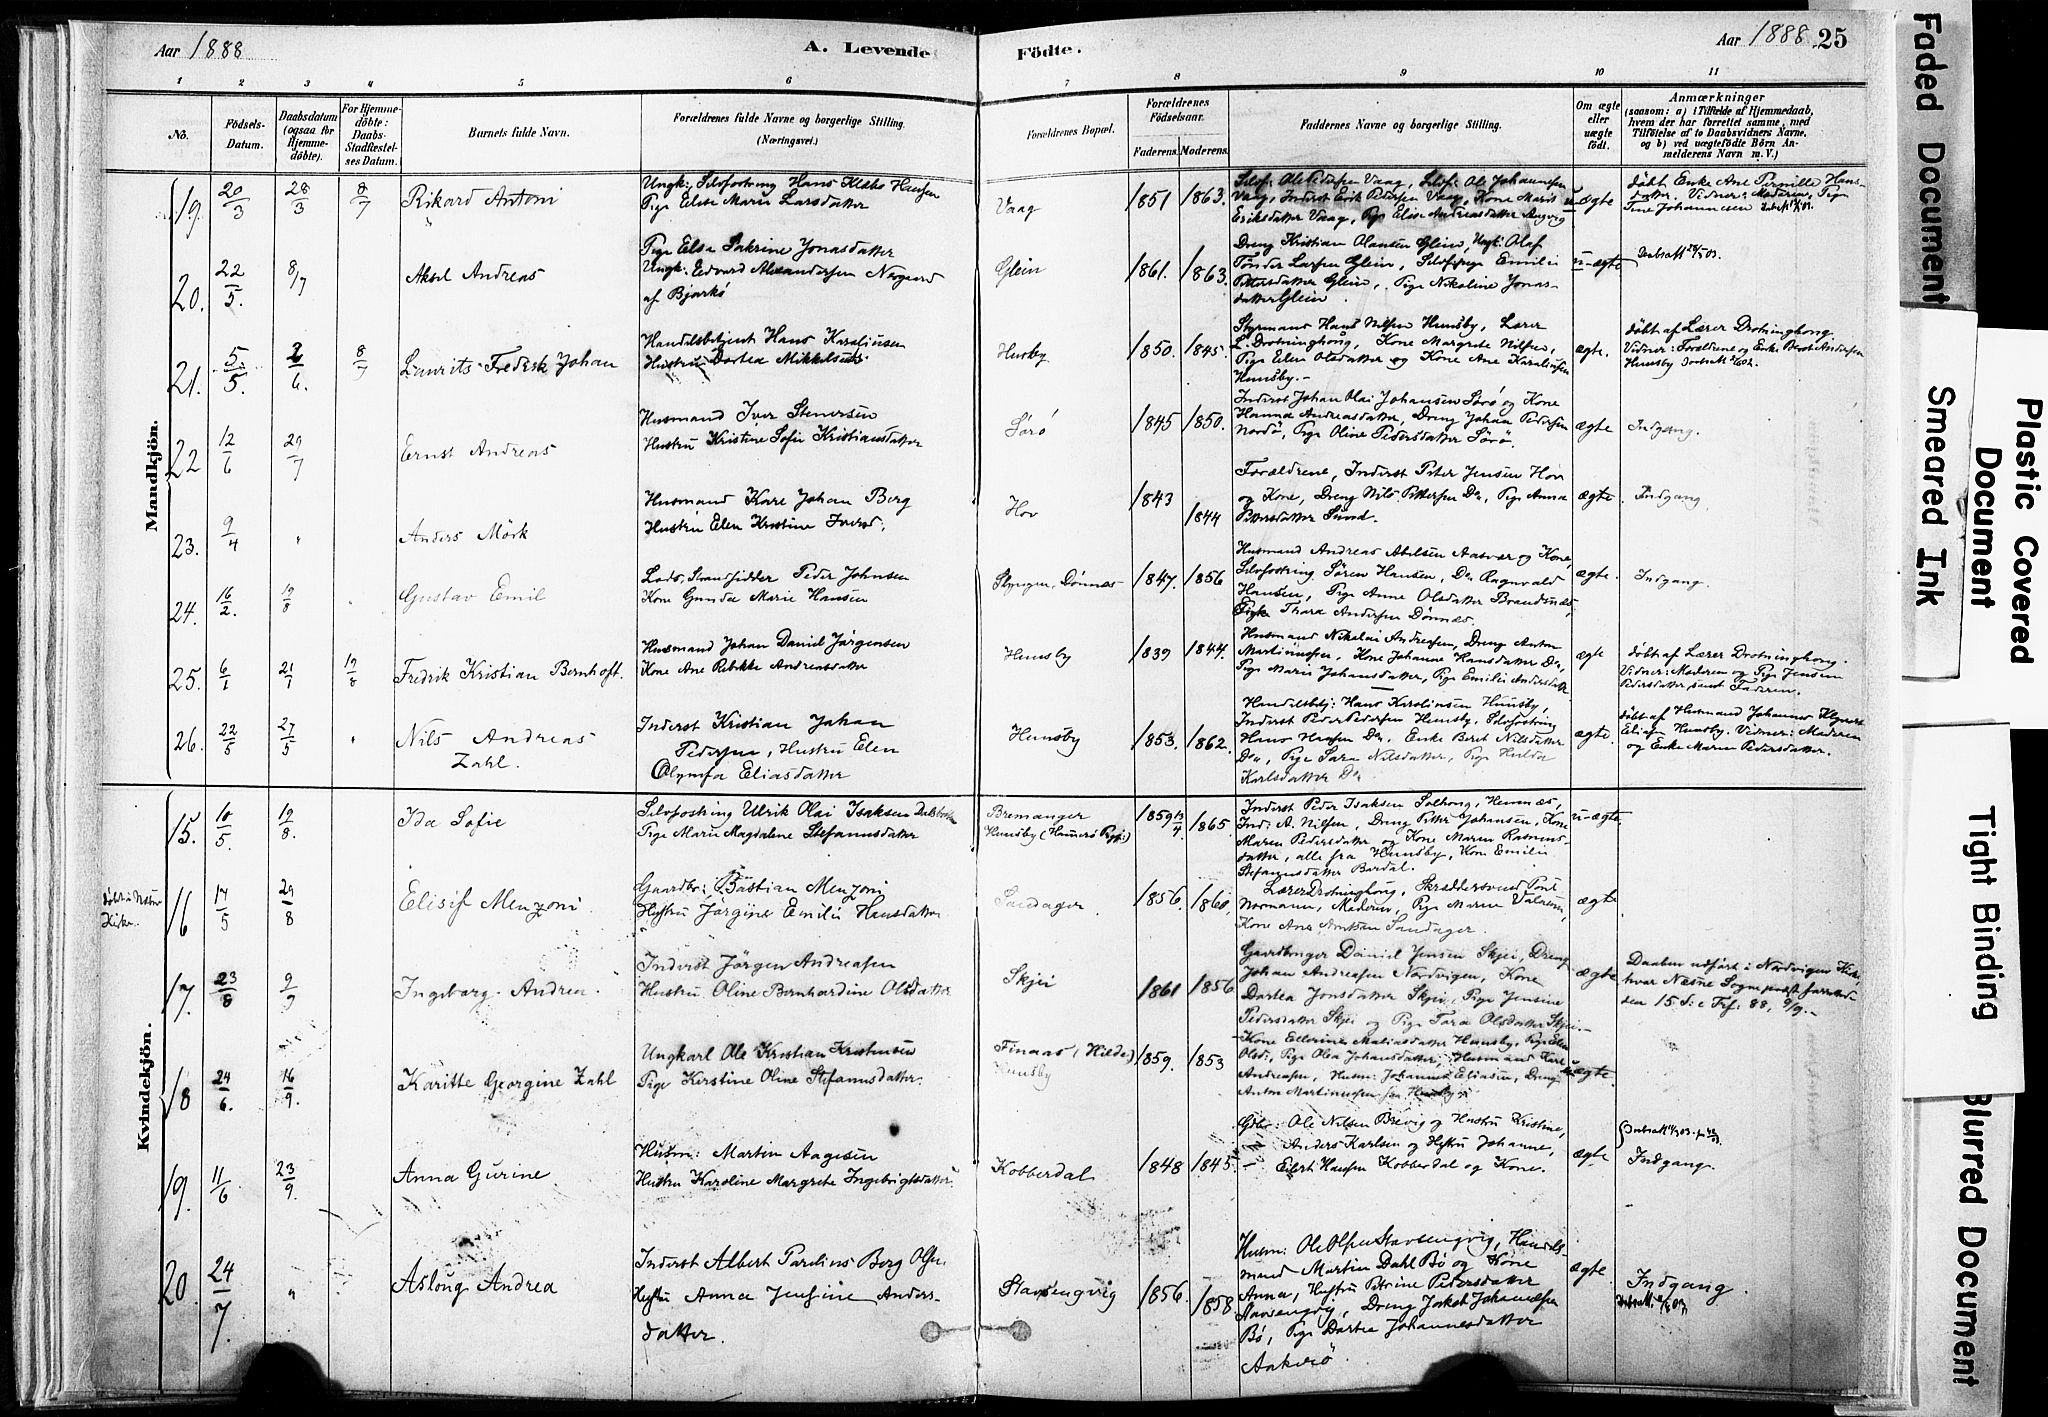 Aar 1888
A. Levende
Födte.
Aar 1888 25
1 2 3 4 5 6 7 8 9 10 11
No.
Födsels-
Datum.
Daabsdatum
(ogsaa for
Hjemme-
döbte).
For Hjemme-
döbte:
Daabs-
Stadfæstel-
ses Datum.
Barnets fulde Navn.
Forældrenes fulde Navne og borgerlige Stilling.
(Næringsvei.)
Forældrenes Bopæl.
Forældrenes
Födselsaar.
Faderens. Moderens.
Faddernes Navne og borgerlige Stilling.
Om ægte
eller
uægte
födt.
Anmærkninger
(saasom: a) i Tilfælde af Hjemmedaab,
hvem der har forrettet samme, med
Tilföielse af to Daabsvidners Navne,
og b) ved uægtefödte Börn An-
melderens Navn m. V.)
Mandkjön.
19. 20/3 28/3 8/7 Rikard Antoni
Ungk: Selvfostring Hans Klabo Hansen
Pige Elise Marie Larsdatter
Vaag 1851 1863.
Selvf: Ole Pedersen Vaag, Selvf: Ole Johannesen
Vaag, Inderst Erik Petersen Vaag, Kone Marit
Eriksdatter Vaag, Pige Elise Andreasdatter
u-ægte
döbt Enke Ane Pernille Hans-
datter. Vidner: Moderen, Pige
Tine Johannesen
20. 22/5. 8/7 Aksel Andreas
Pige Else Jakrine Jonasdatter
Ungk: Edvard Alexandersen Norgaard
af Bjarkö
Glein 1861. 1863.
Dreng Kristian Olausen Glein, Ungk: Olaf
Tönder Larsen Glein, Emilie
Pettersdatter Glein, Pige Nikoline Jonas-
datter Glein.
u-ægte
21. 5/5. 6. 8/7 Laurits Fredrik Johan
Handelsbetjent Hans Karoliusen
Hustru Dortea Mikkelsen
Husby 1850. 1845.
Styrmand Hans Nilsen Hunsby, Lærer
L. Drotninghong, Kone Margrete Nilsen,
Pige Elen Olsdatter og Kone Ane Karoliusen
Hunsby.
ægte.
döbt af Lærer Drotninghong.
Vidner: Forældrene og Enke Berit Andersen
Hunsby
22 12/6 29/7 Ernst Andreas
Husmand Iver Stenersen
Hustru Kristine Sofie Kristiansdatter
Sörö 1845 1850.
Inderst Johan Olai Johansen Sörö og Kone
Hanna Andreasdatter, Dreng Johan Pedersen
Nordö, Pige Oline Pedersdatter Sörö.
ægte Indgang.
23. 9/4 " Anders Mörk
Husmand Kare Johan Berg
Hustru Elen Kristine Iversd.
Hov 1843 1844
Forældrene, Inderst Peter Jensen Hov
og Kone, Dreng Nils Pettersen Do, Pige Anna
Pettersdatter Sund.
ægte. Indgang
24. 16/2. 19/8 " Gustav Emil
Lods, Strandsidder Peder Johnsen
Kone Gunda Marie Hansen
Dönnæs 1847. 1856
Husmand Andreas Abelsen Aasvær og Kone,
Selvfostring Sören Hansen, Do Ragnvald
Hansen, Pige Anne Olsdatter Brandsnæs,
Thora Andersen Dönnæs.
ægte. Indgang.
25. 6/1 21/1 19/8 Fredrik Kristian Bernhoft.
Husmand Johan Daniel Jörgensen
Kone Ane Rebekke Andreasdatter
Hunsby 1839 1844.
Husmand Nikolai Andreasen, Dreng Anton
Martinussen, Kone Johanne Hansdatter Do,
Pige Marie Johansdatter, Pige Emilie Andersdatter
ægte
döbt af Lærer Drotninghong.
Vidner: Moderen og Pige Jensine
Pedersdatter, samt Faderen.
26. 22/5 27/5 " Nils Andreas
Zahl.
Inderst Kristian Johan
Pedersen, Hustru Elen
Olymfa Eliasdatter
Hunsby 1853. 1862.
Handelsbetj: Hans Karoliusen Hunsby,
Inderst Peder Pedersen Hunsby, Selvfostring
Hans Hansen Do, Enke Beret Nilsdatter
Do, Pige Sara Nilsdatter, Pige Hulda
Karlsdatter Do
ægte.
döbt af Husmand Johannes
Eliasen Hunsby. Vidner: Moderen
og Enke Maren Pedersdatter.
Kvindekjön.
15. 10/5. 19/8. Ida Sofie
Selvfostring Ulrik Olai Isaksen
Pige Marie Magdalene Stefanusdatter
Bremanger
Hunsby
1859 1865.
Inderst Peder Isaksen Solhong, Hemnæs,
Ind: A. Nilsen, Dreng Petter Johansen, Kone
Maren Pedersdatter og Kone Maren Rasmus-
datter, alle fra Hunsby, Kone Emilie
Stefanusdatter Bardal.
u-ægte.
döbt i Næsne
Kirke.
16 17/5 29/8 Elisif Menzoni
Gaardbr: Bastian Menzoni
Hustru Jörgine Emilie Hansdatter
Sandager 1856. 1860.
Lærer Drotninghong, Skræddersvend
Normann, Moderen, Pige Maren Valnum,
Kone Ane Arntsen Sandager.
ægte
17. 23/8 9/9 Ingeborg Andrea.
Inderst Jörgen Andreasen
Hustru Oline Bernhardine Olsdatter
Skjei 1861 1856
Gaardbruger Daniel Jensen Skjei, Dreng
Johan Andreasen Nordvigen, Kone
Dortea Jonsdatter Skjei, Pige Jensine
Pedersdatter Skjei og Pige Tora Olsdatter Skjei.
ægte
Daaben udfört i Nordvigens Kirke,
hvor Næsne Sogneprest forrettede
den 15 S: e Tref: 88, 9/9.
18 24/6. 16/9. Karitte Georgine Zahl
Ungkarl Ole Kristian Kristensen
Pige Kerstine Oline Stefanusdatter.
Finaas (Hilde)
Hunsby
1859. 1853
Kone Ellerine Matiasdatter Hunsby, Pige Elen
Olsd., Pige Olea Johansdatter, Husmand Karl
Andreasen, Husm: Johannes Eliasen, Dreng
Anton Martinussen fra Hunsby
u-ægte.
19. 11/6 23/9. Anna Gurine
Husm: Martin Aagesen
Hustru Karoline Margrete Ingebrigtsdatter
Kobberdal 1848 1845.
Gdbr: Ole Nilsen Brevig og Hustru Kristine,
Anders Karlsen og Hustru Johanne,
Eilert Hansen Kobberdal og Kone.
ægte Indgang.
20. 24/7. " Aslöug Andrea
Inderst Albert Parelius Berg Olsen
Hustru Anna Jensine Anders-
datter.
Stavsengvig 1856. 1858
Husm: Ole Olsen Stavsengvig, Handels-
mand Martin Dahl Bö og Kone
Anna, Hustru Petrine Pedersdatter
Stavsengvig, Dreng Jakob Johannesen
Bö, Pige Dortea Johannesdatter
Aakvö.
ægte. Indgang.
Faded Document
Smeared Ink
Plastic Covered
Document
Tight Binding
Blurred Document